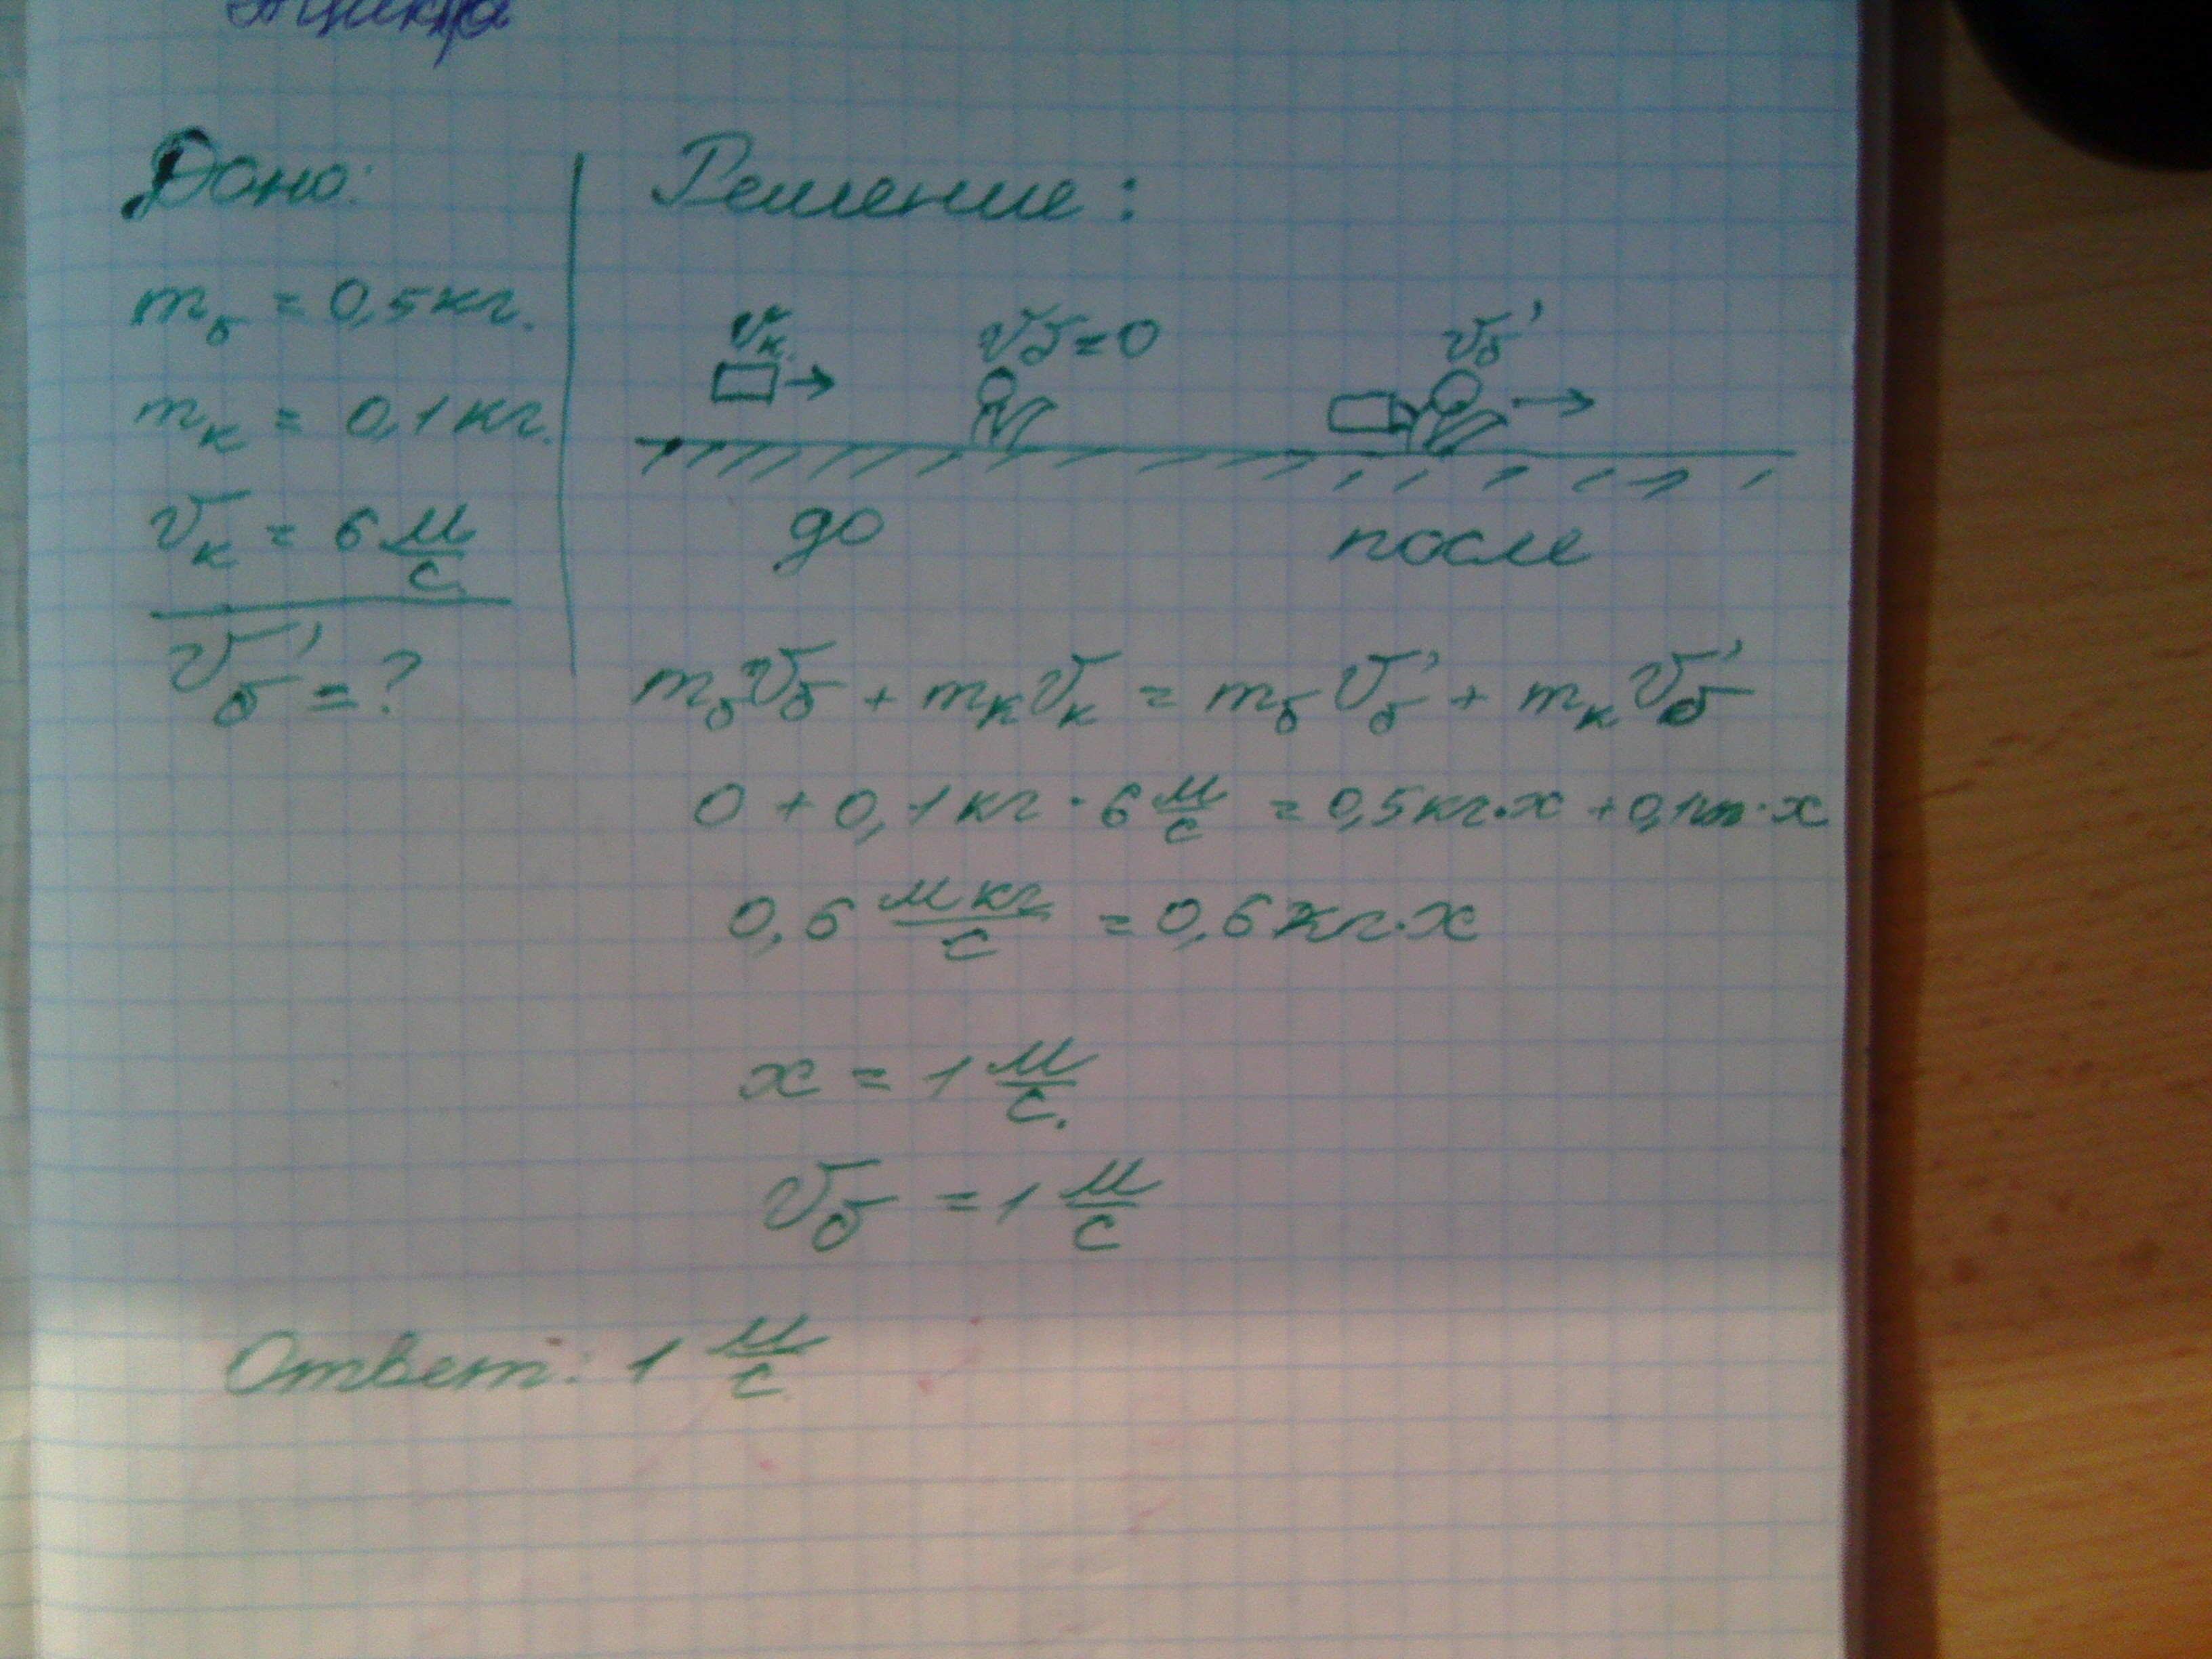 Дано:
m_б = 0,5 кг.
m_к = 0,1 кг.
v_к = 6 м/с
v_б' = ?
Решение:
v_к v_б = 0 v_б'
до после
m_б v_б + m_к v_к = m_б v_б' + m_к v_б'
0 + 0,1 кг · 6 м/с = 0,5 кг · x + 0,1 кг · x
0,6 м кг/с = 0,6 кг · x
x = 1 м/с.
v_б = 1 м/с
Ответ: 1 м/с